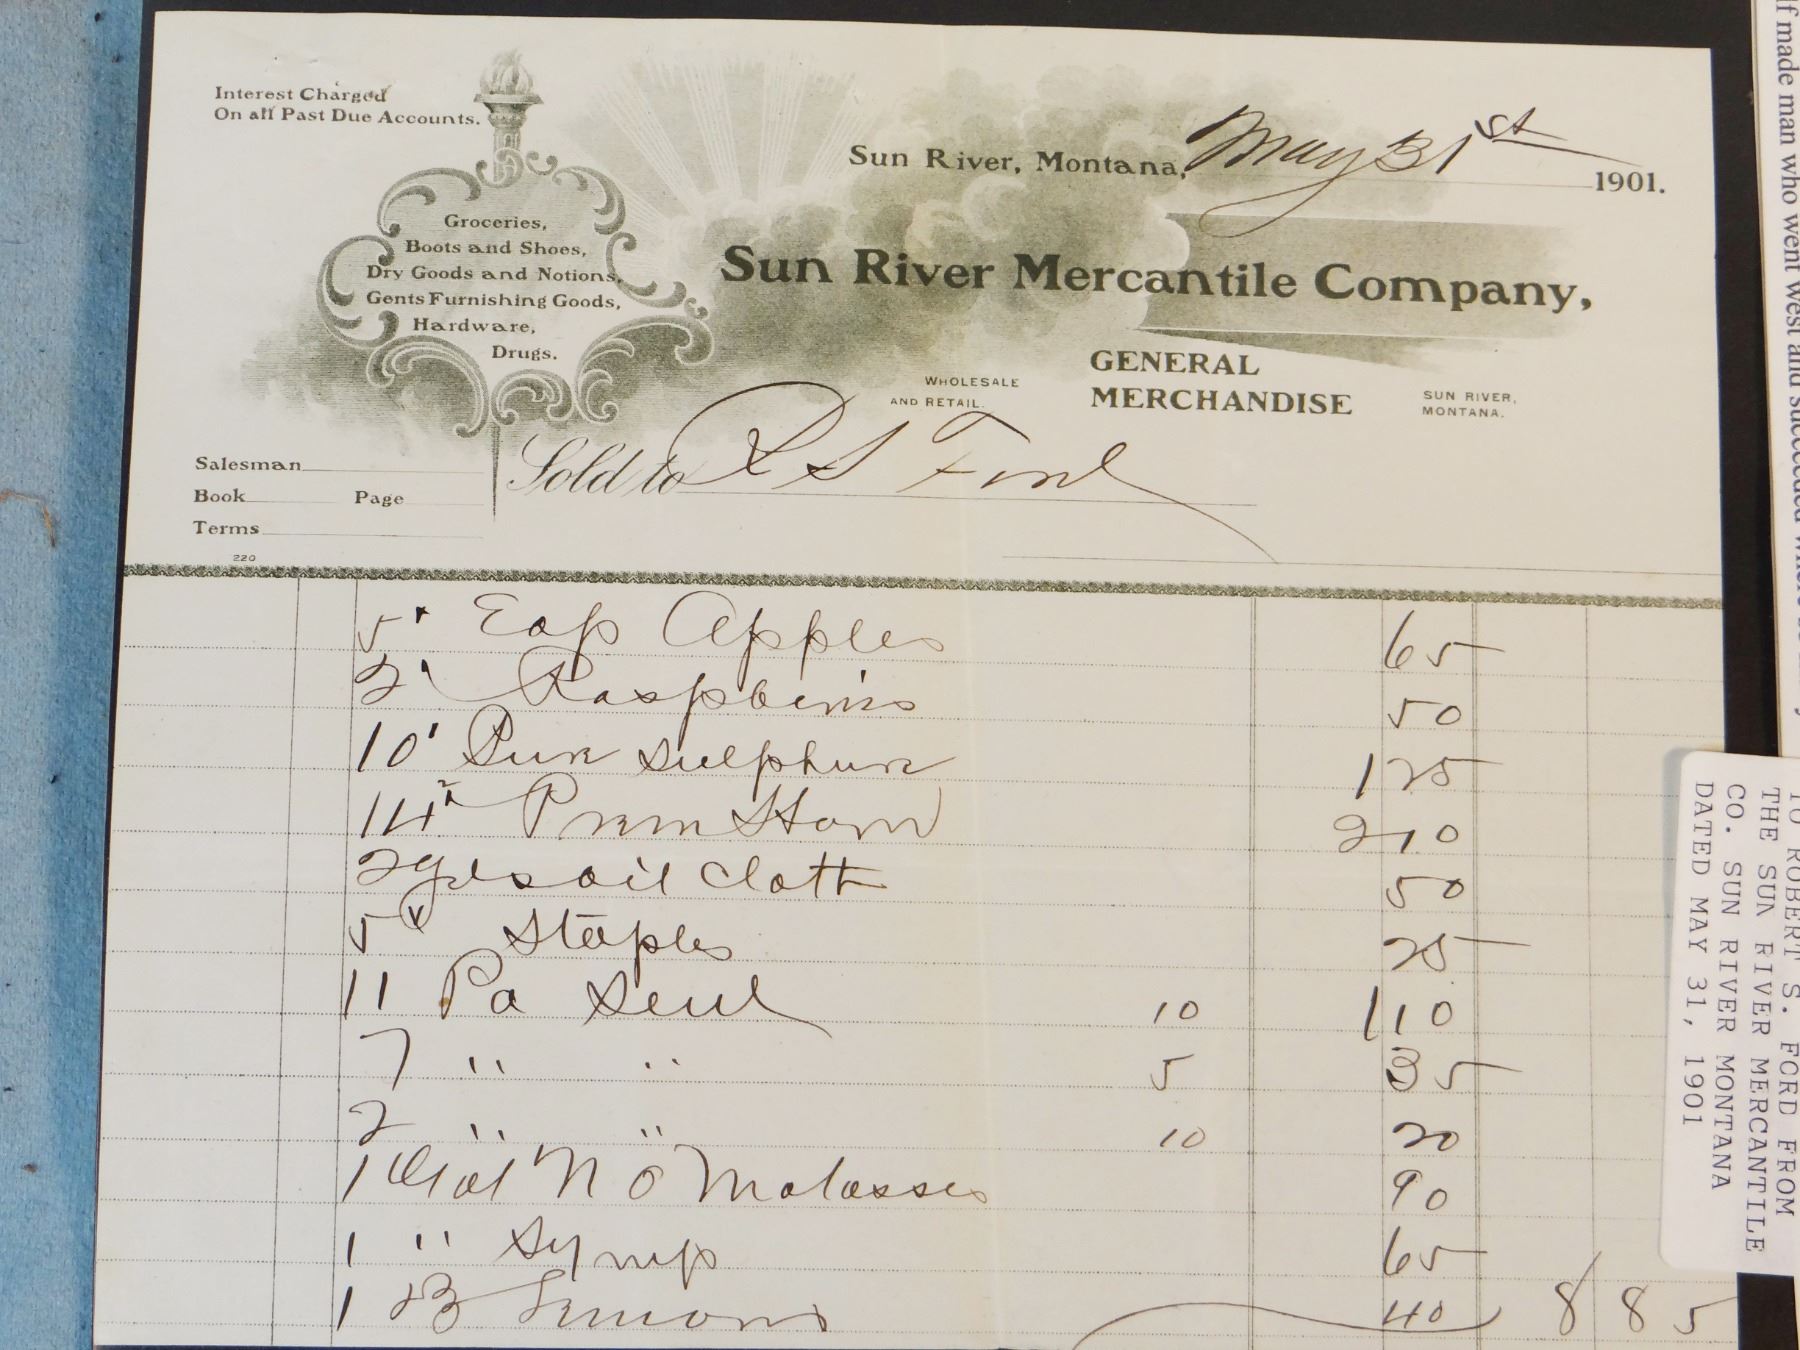 Interest Charged
On all Past Due Accounts.
Sun River, Montana, May 31st 1901.
Groceries,
Boots and Shoes,
Dry Goods and Notions,
Gents Furnishing Goods,
Hardware,
Drugs.
Sun River Mercantile Company,
WHOLESALE
AND RETAIL.
GENERAL
MERCHANDISE
SUN RIVER,
MONTANA.
Salesman
Book Page
Terms
220
Sold to R S Ford
5# Eap Apples 65
2# Raspberries 50
10# Sulphur 1 25
14# 2 10
2 yds oil cloth 50
5# Staples 25
11 Pa Seed 10 1 10
7 " " 5 35
2 " " 10 20
1 Gal N O Molasses 90
1 " Syrup 65
1 Lemons 40 8 85
lf made man who went west and succeeded
TO ROBERT S. FORD FROM
THE SUN RIVER MERCANTILE
CO. SUN RIVER MONTANA
DATED MAY 31, 1901